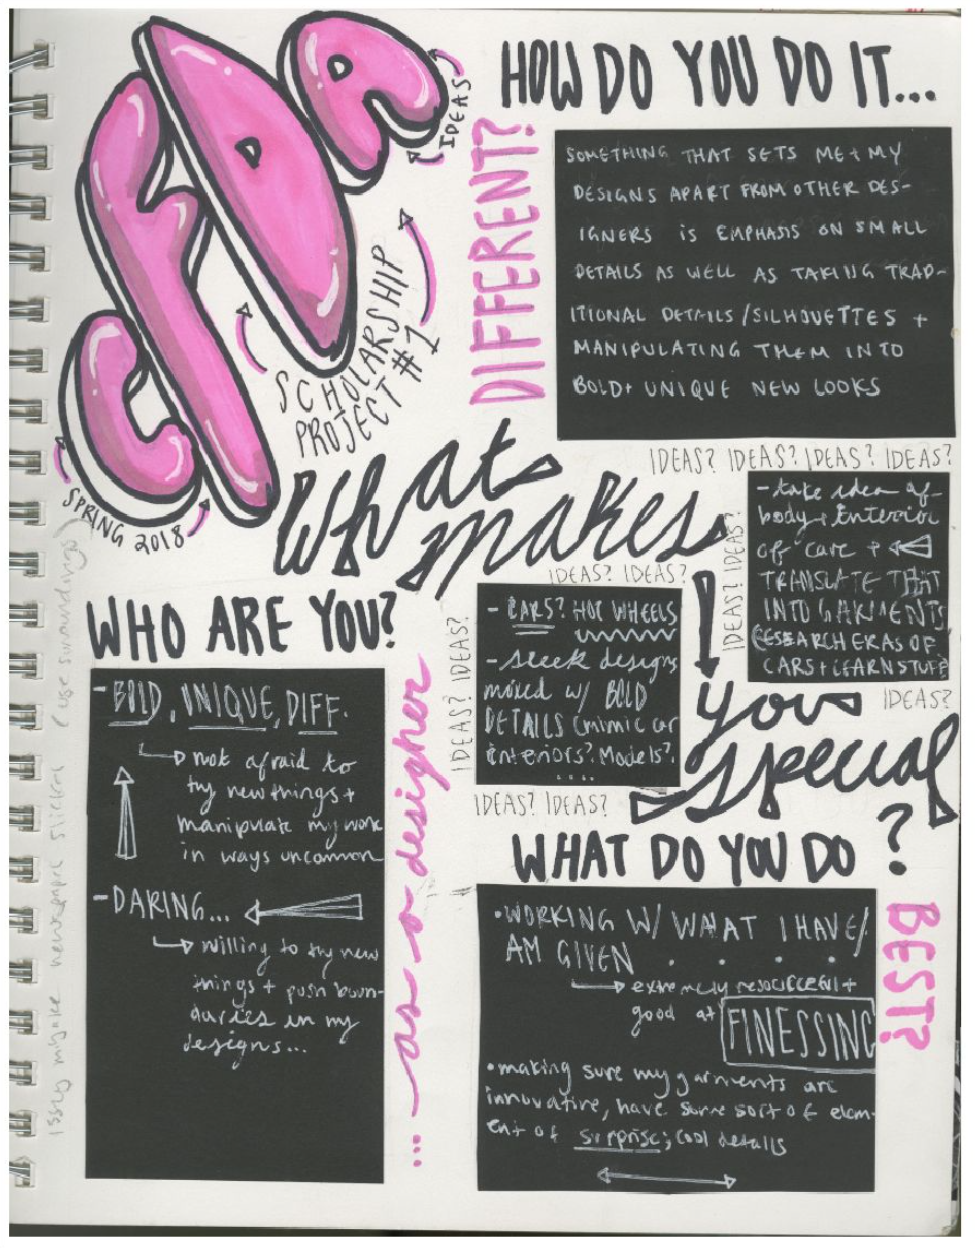 CFDA
IDEAS
SCHOLARSHIP
PROJECT #1
SPRING 2018
HOW DO YOU DO IT...
DIFFERENT?
SOMETHING THAT SETS ME + MY
DESIGNS APART FROM OTHER DES-
IGNERS IS EMPHASIS ON SMALL
DETAILS AS WELL AS TAKING TRAD-
ITIONAL DETAILS/SILHOUETTES +
MANIPULATING THEM INTO
BOLD+ UNIQUE NEW LOOKS
What
makes
you
special
?
IDEAS? IDEAS? IDEAS? IDEAS?
IDEAS? IDEAS?
- take idea of
body + interior
of care +
TRANSLATE THAT
INTO GARMENTS
(RESEARCH ERAS OF
CARS + LEARN STUFF)
IDEAS?
IDEAS? IDEAS?
IDEAS? IDEAS?
- CARS? HOT WHEELS
- sleek designs
mixed w/ BOLD
DETAILS (mimic car
interiors? Models?
....
IDEAS? IDEAS?
WHO ARE YOU?
... as a designer
- BOLD, UNIQUE, DIFF.
not afraid to
try new things +
manipulate my work
in ways uncommon
- DARING...
willing to try new
things + push boun-
daries in my
designs...
WHAT DO YOU DO
BEST?
• WORKING W/ WHAT I HAVE/
AM GIVEN . . . .
extremely resourceful +
good at FINESSING
• making sure my garments are
innovative, have some sort of elem-
ent of surprise; cool details
Issey miyake newspaper (use surroundings)